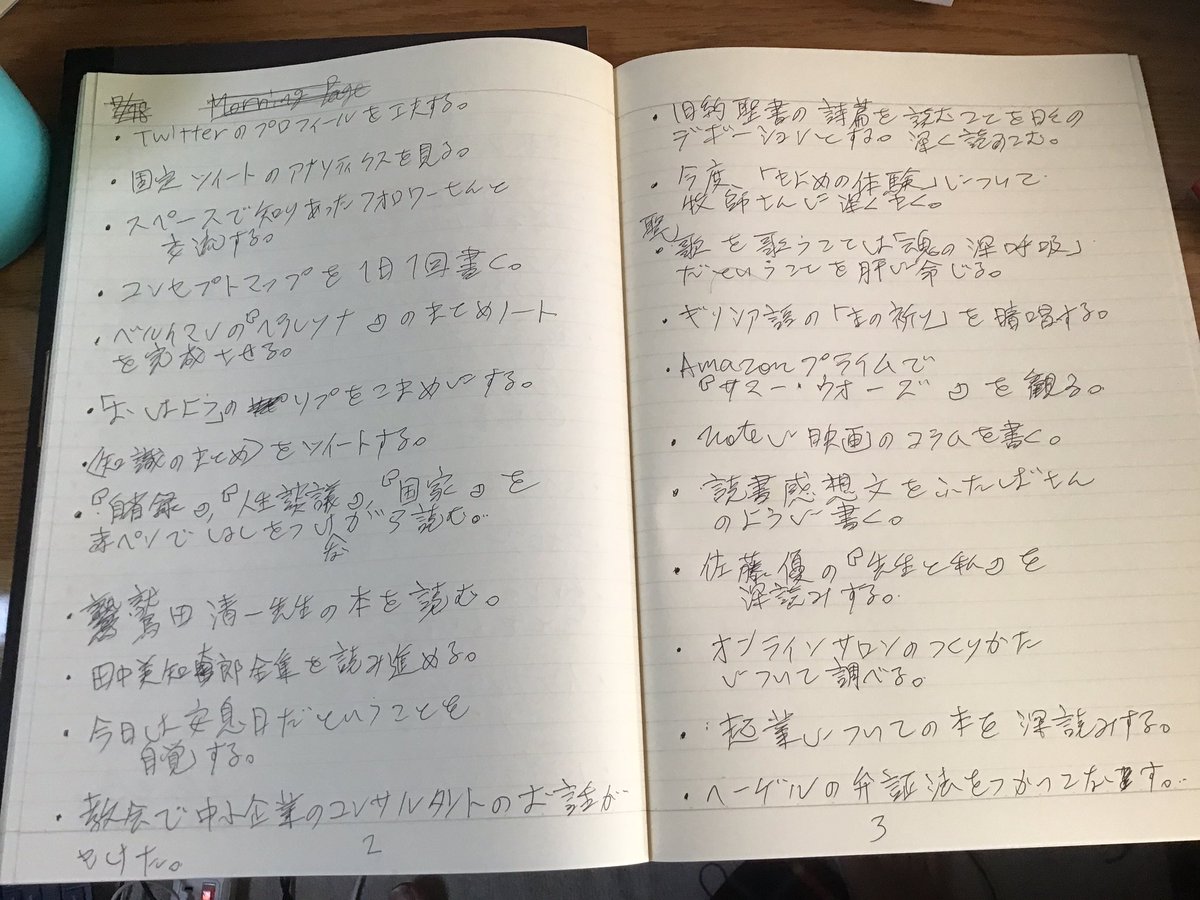 7/18 Morning Page
・Twitterのプロフィールを工夫する。
・固定ツイートのアナリティクスを見る。
・スペースで知りあったフォロワーさんと
交流する。
・コンセプトマップを1日1回書く。
・ベルクソンの『 』のまとめノート
を完成させる。
・「おはよう」のリプをこまめにする。
・〈知識のまとめ〉をツイートする。
・『自省録』,『人生談議』,『国家』を
赤ペンでしるしをつけながら読む。
・鷲田清一先生の本を読む。
・田中美知太郎全集を読み進める。
・今日は安息日だということを
自覚する。
・教会で中小企業のコンサルタントのお話が
きけた。
2
・旧約聖書の詩篇を読むことを日々の
デボーションとする。深く読みこむ。
・今度「きよめの体験」について
牧師さんに深くきく。
・聖歌を歌うことは「魂の深呼吸」
だということを肝に命じる。
・ギリシア語の「主の祈り」を暗唱する。
・Amazonプライムで
『 ・ウォーズ』を観る。
・noteに映画のコラムを書く。
・読書感想文をふたばさん
のように書く。
・佐藤優の『先生と私』を
深読みする。
・オンラインサロンのつくりかた
について調べる。
・起業についての本を深読みする。
・ヘーゲルの弁証法をつかってなす。
3